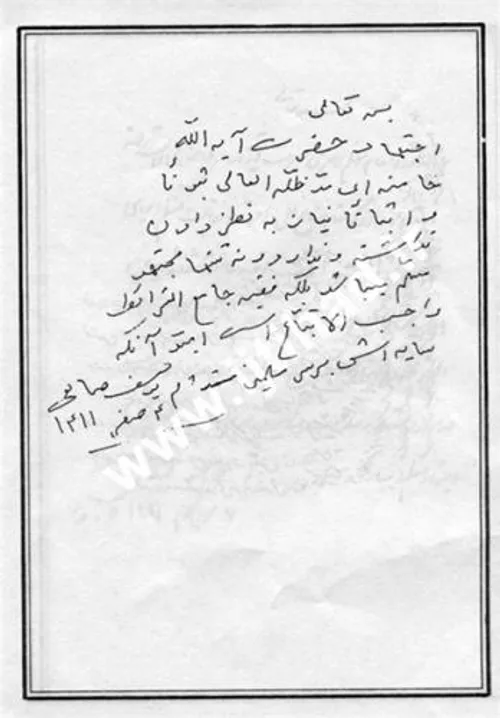 بسمه تعالی
اجتهاد حضرت آیه الله
خامنه ای مدظله العالی ثبوتاً
و اثباتاً نیاز به نظر دادن
نداشته و ندارد و نه تنها مجتهد
مسلم میباشد بلکه فقیه جامع الشرائط
واجب الاتباع است امید آنکه
سایه اش بر سر مسلمین مستدام یوسف صانعی
۴ صفر ۱۴۱۱